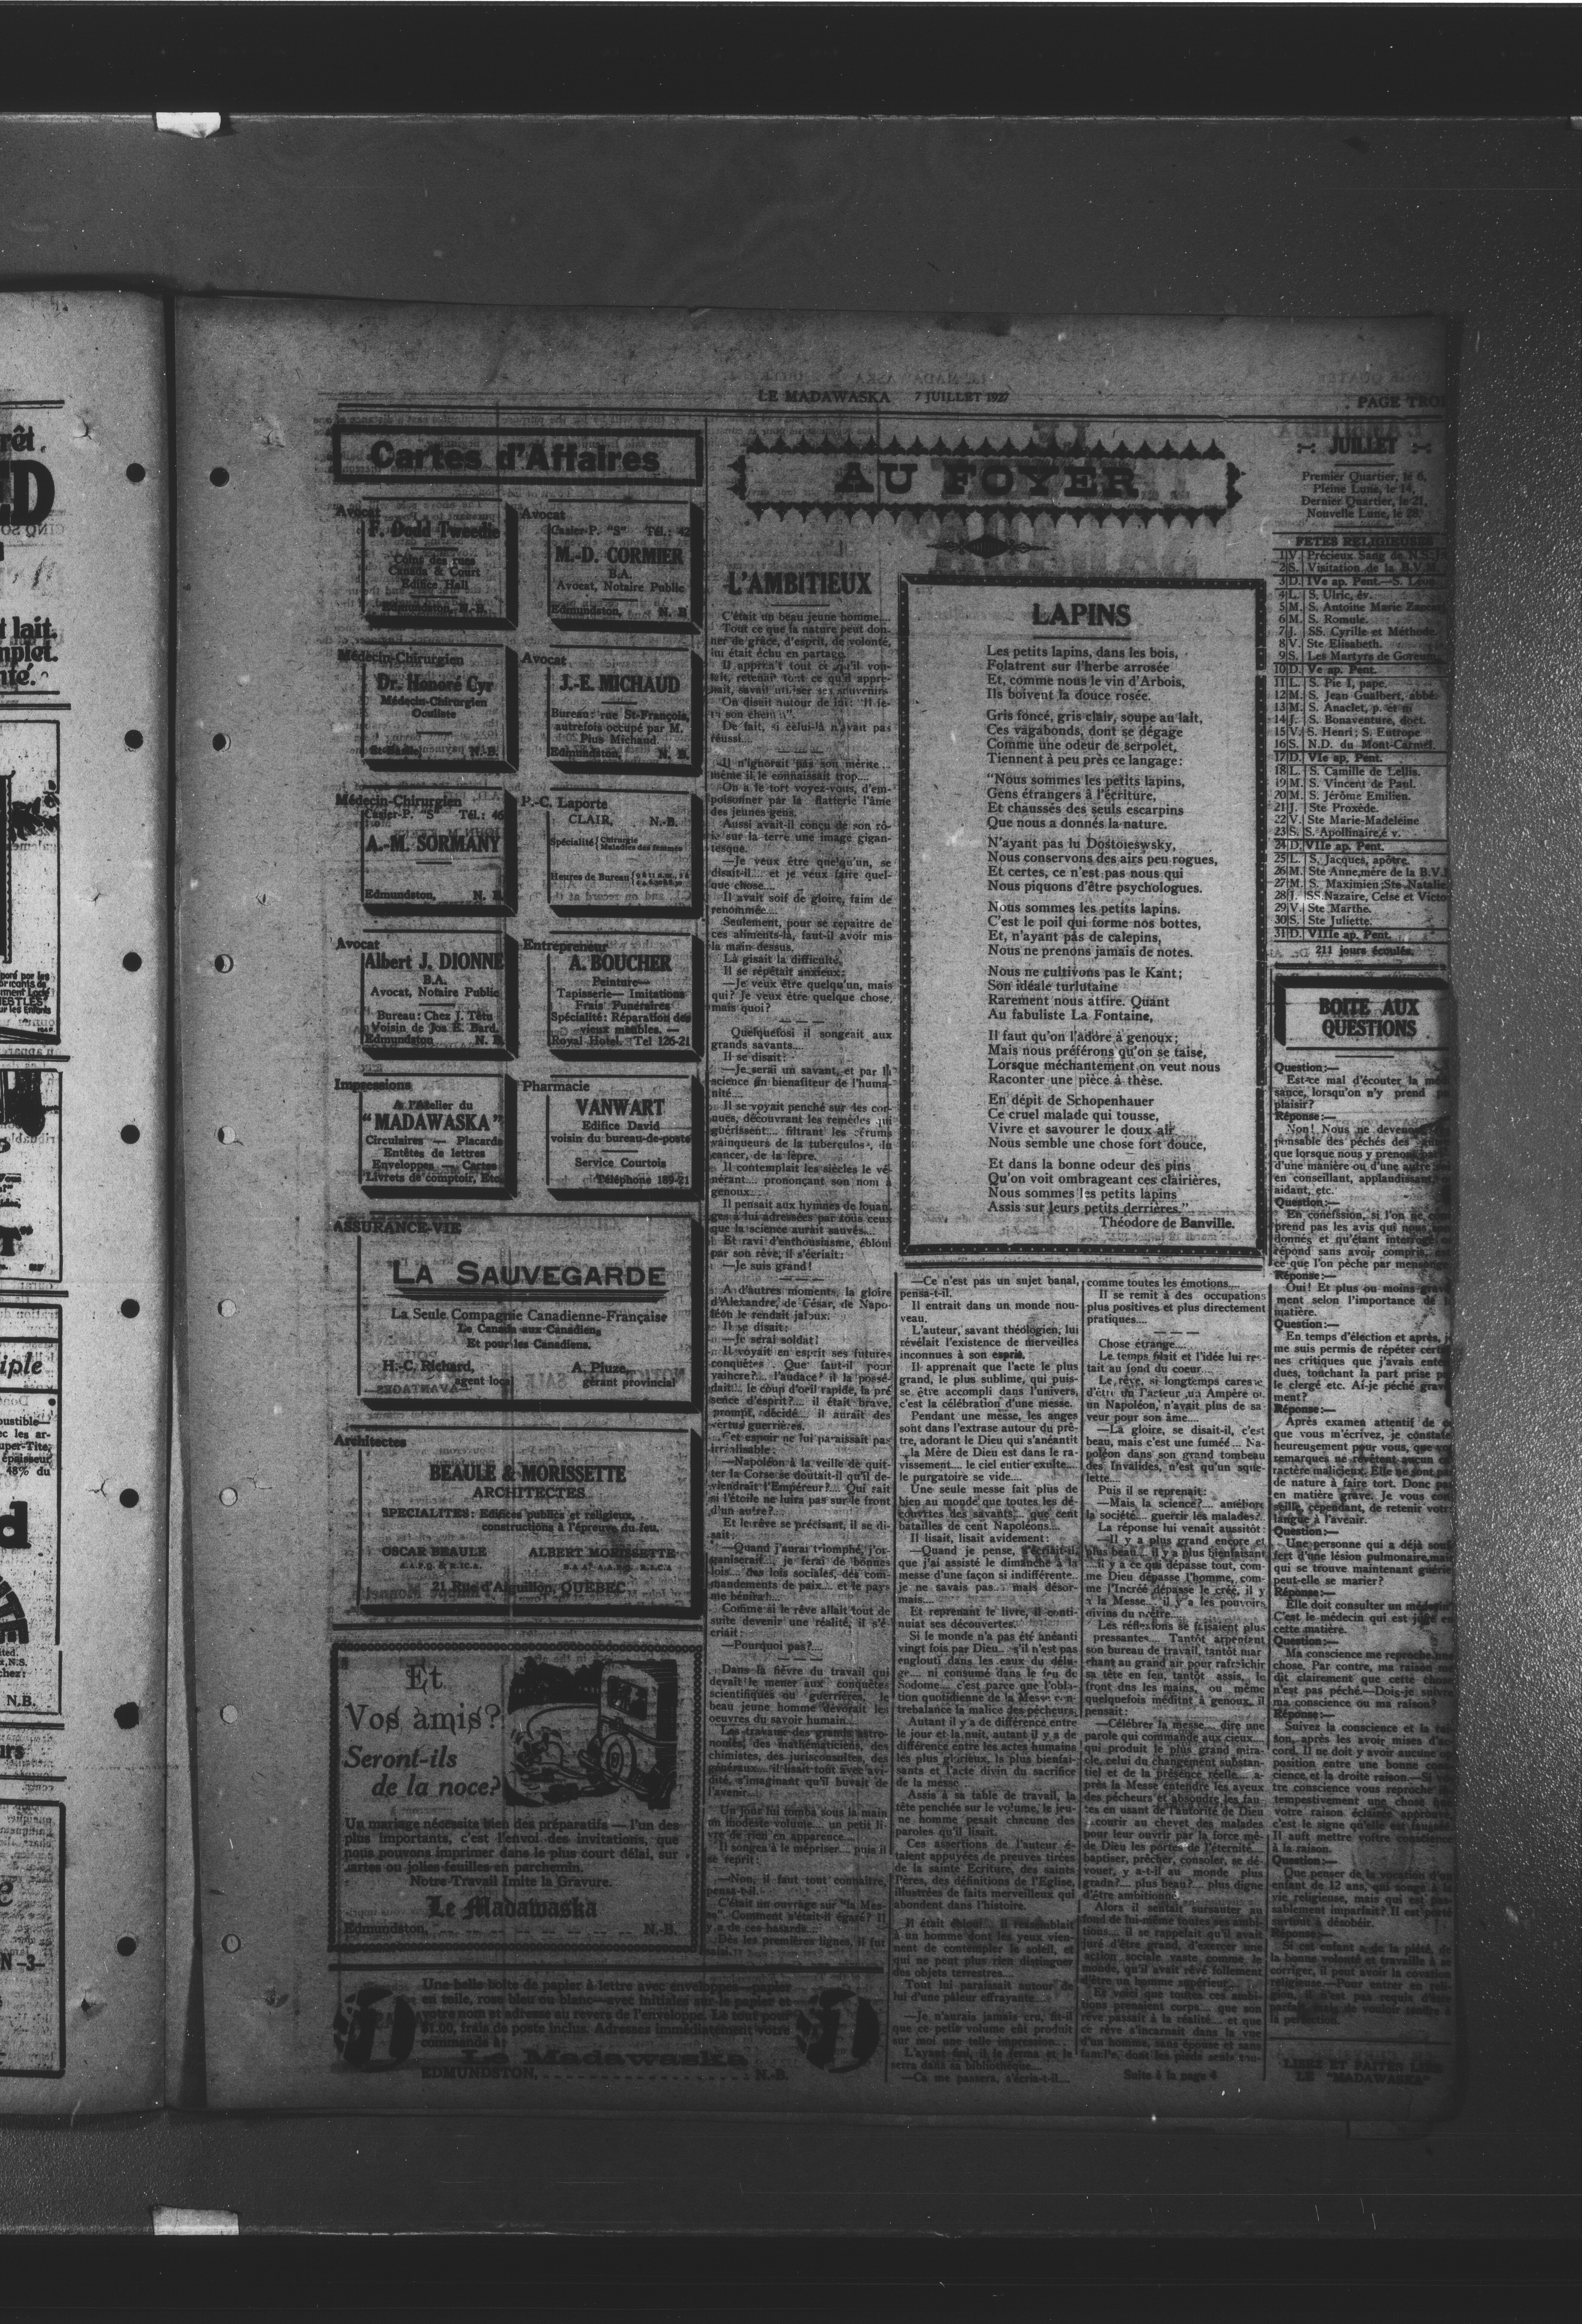 LE MADAWASKA 7 JUILLET 1927
PAGE TROI
Cartes d'Affaires
Avocat
F. Dodd Tweedie
Coins des rues
Canada & Court
Edifice Hall
Edmundston, N.-B.
Avocat
Casier-P. "S" Tél.: 42
M.-D. CORMIER
B.A.
Avocat, Notaire Public
Edmundston, N. B
Médecin-Chirurgien
Dr. Honoré Cyr
Médecin-Chirurgien
Oculiste
St-Basile, N.-B.
Avocat
J.-E. MICHAUD
Bureau: rue St-François,
autrefois occupé par M.
Pius Michaud.
Edmundston, N. B.
Médecin-Chirurgien
Casier-P. "S" Tél.: 46
A.-M. SORMANY
Edmundston, N. B.
P.-C. Laporte
CLAIR, N.-B.
Spécialité Chirurgie
Maladies des femmes
Heures de Bureau
Avocat
Albert J. DIONNE
B.A.
Avocat, Notaire Public
Bureau: Chez J. Têtu
Voisin de Jos E. Bard.
Edmundston N. B.
Entrepreneur
A. BOUCHER
Peinture—
Tapisserie— Imitations
Frais Funéraires
Spécialité: Réparation des
vieux meubles. —
Royal Hotel. Tel 126-21
Impressions
A l'Atelier du
"MADAWASKA"
Circulaires — Placards
Entêtes de lettres
Enveloppes — Cartes
Livrets de comptoir, Etc.
Pharmacie
VANWART
Edifice David
voisin du bureau-de-poste
Service Courtois
Téléphone 189-21
ASSURANCE-VIE
LA SAUVEGARDE
La Seule Compagnie Canadienne-Française
Le Canada aux Canadiens
Et pour les Canadiens.
H.-C. Richard, A. Pluze,
agent local gérant provincial
Architectes
BEAULE & MORISSETTE
ARCHITECTES
SPECIALITES: Edifices publics et religieux,
constructions à l'épreuve du feu.
OSCAR BEAULE ALBERT MORISSETTE
21 Rue d'Aiguillon, QUEBEC
Et
Vos amis?
Seront-ils
de la noce?
Un mariage nécessite bien des préparatifs — l'un des
plus importants, c'est l'envoi des invitations, que
nous pouvons imprimer dans le plus court délai, sur
cartes ou jolies feuilles en parchemin.
Notre Travail Imite la Gravure.
Le Madawaska
Edmundston, N.-B.
Une belle boîte de papier à lettre avec enveloppes—papier
en toile, rose bleu ou blanc—avec initiales sur le papier et
votre nom et adresse au revers de l'enveloppe. Le tout pour
$1.00, frais de poste inclus. Adresses immédiatement votre
commande à
Le Madawaska
EDMUNDSTON, N.-B.
AU FOYER
L'AMBITIEUX
C'était un beau jeune homme....
Tout ce que la nature peut don-
ner de grâce, d'esprit, de volonté,
lui était échu en partage.
Il apprenait tout ce qu'il vou-
lait, retenait tout ce qu'il appre-
nait, savait utiliser ses souvenirs
On disait autour de lui: "Il fe-
ra son chemin".
De fait, si celui-là n'avait pas
réussi....
Il n'ignorait pas son mérite...
même il le connaissait trop....
On a le tort voyez-vous, d'em-
poisonner par la flatterie l'âme
des jeunes gens.
Aussi avait-il conçu de son rô-
le sur la terre une image gigan-
tesque.
—Je veux être quelqu'un, se
disait-il.... et je veux faire quel-
que chose....
Il avait soif de gloire, faim de
renommée....
Seulement, pour se repaitre de
ces aliments-là, faut-il avoir mis
la main dessus.
Là gisait la difficulté.
Il se répétait anxieux:
—Je veux être quelqu'un, mais
qui? Je veux être quelque chose,
mais quoi?
Quelquefosi il songeait aux
grands savants....
Il se disait:
—Je serai un savant, et par la
science un bienafiteur de l'huma-
nité....
Il se voyait penché sur les cor-
nues, découvrant les remèdes qui
guérissent.... filtrant les sérums
vainqueurs de la tuberculose, du
cancer, de la lèpre.
Il contemplait les siècles le vé-
nérant.... prononçant son nom à
genoux....
Il pensait aux hymnes de louan-
ges à lui adressées par tous ceux
que la science aurait sauvés....
Et ravi d'enthousiasme, ébloui
par son rêve, il s'écriait:
—Je suis grand!
A d'autres moments, la gloire
d'Alexandre, de César, de Napo-
léon le rendait jaloux.
Il se disait:
—Je serai soldat!
Il voyait en esprit ses futures
conquêtes. Que faut-il pour
vaincre?.... l'audace? il la possé-
dait.... le coup d'oeil rapide, la pré
sence d'esprit?.... il était brave,
prompt, décidé.... il aurait des
vertus guerrières.
Cet espoir ne lui paraissait pas
irréalisable:
—Napoléon à la veille de quit-
ter la Corse se doutait-il qu'il de-
viendrait l'Empéreur?.... Qui sait
si l'étoile ne luira pas sur le front
d'un autre?....
Et le rêve se précisant, il se di-
sait:
—Quand j'aurai triomphé, j'or-
ganiserai.... je ferai de bonnes
lois.... des lois sociales, des com-
mandements de paix.... et le pays
me bénira!....
Comme si le rêve allait tout de
suite devenir une réalité, il s'é-
criait:
—Pourquoi pas?....
Dans la fièvre du travail qui
devait le mener aux conquêtes
scientifiques ou guerrières, le
beau jeune homme dévorait les
oeuvres du savoir humain....
Les travaux des grands astro-
nomes, des mathématiciens, des
chimistes, des jurisconsultes, des
généraux.... il lisait tout avec avi-
dité, s'imaginant qu'il buvait de
l'avenir....
Un jour lui tomba sous la main
un modeste volume.... un petit li-
vre de rien en apparence....
Il songea à le mépriser.... puis il
se reprit:
—Non, il faut tout connaître,
pensa-t-il.
C'était un ouvrage sur "la Mes-
se". Comment s'était-il égaré? Il
y a de ces hasards....
Dès les premières lignes, il fut
LAPINS
Les petits lapins, dans les bois,
Folatrent sur l'herbe arrosée
Et, comme nous le vin d'Arbois,
Ils boivent la douce rosée.
Gris foncé, gris clair, soupe au lait,
Ces vagabonds, dont se dégage
Comme une odeur de serpolet,
Tiennent à peu près ce langage:
"Nous sommes les petits lapins,
Gens étrangers à l'écriture,
Et chaussés des seuls escarpins
Que nous a donnés la nature.
N'ayant pas lu Dostoïeswsky,
Nous conservons des airs peu rogues,
Et certes, ce n'est pas nous qui
Nous piquons d'être psychologues.
Nous sommes les petits lapins.
C'est le poil qui forme nos bottes,
Et, n'ayant pas de calepins,
Nous ne prenons jamais de notes.
Nous ne cultivons pas le Kant;
Son idéale turlutaine
Rarement nous attire. Quant
Au fabuliste La Fontaine,
Il faut qu'on l'adore à genoux;
Mais nous préférons qu'on se taise,
Lorsque méchantement on veut nous
Raconter une pièce à thèse.
En dépit de Schopenhauer
Ce cruel malade qui tousse,
Vivre et savourer le doux air
Nous semble une chose fort douce,
Et dans la bonne odeur des pins
Qu'on voit ombrageant ces clairières,
Nous sommes les petits lapins
Assis sur leurs petits derrières."
Théodore de Banville.
—Ce n'est pas un sujet banal,
pensa-t-il.
Il entrait dans un monde nou-
veau.
L'auteur, savant théologien, lui
révélait l'existence de merveilles
inconnues à son esprit.
Il apprenait que l'acte le plus
grand, le plus sublime, qui puis-
se être accompli dans l'univers,
c'est la célébration d'une messe.
Pendant une messe, les anges
sont dans l'extrase autour du prê-
tre, adorant le Dieu qui s'anéantit
...la Mère de Dieu est dans le ra-
vissement.... le ciel entier exulte....
le purgatoire se vide....
Une seule messe fait plus de
bien au monde que toutes les dé-
couvrtes des savants,... que cent
batailles de cent Napoléons....
Il lisait, lisait avidement:
—Quand je pense, s'écriait-il,
que j'ai assisté le dimanche à la
messe d'une façon si indifférente..
je ne savais pas... mais désor-
mais....
Et reprenant le livre, il conti-
nuiat ses découvertes.
Si le monde n'a pas été anéanti
vingt fois par Dieu.. s'il n'est pas
englouti dans les eaux du délu-
ge.... ni consumé dans le feu de
Sodome.... c'est parce que l'obla-
tion quotidienne de la Messe con-
trebalance la malice des pécheurs.
Autant il y a de différence entre
le jour et la nuit, autant il y a de
différence entre les actes humains
les plus glorieux, la plus bienfai-
sants et l'acte divin du sacrifice
de la messe....
Assis à sa table de travail, la
tête penchée sur le volume, le jeu-
ne homme pesait chacune des
paroles qu'il lisait.
Ces assertions de l'auteur é-
taient appuyées de preuves tirées
de la sainte Ecriture, des saints
Pères, des définitions de l'Eglise,
illustrées de faits merveilleux qui
abondent dans l'histoire.
Il était ébloui.... il ressemblait
à un homme dont les yeux vien-
nent de contempler le soleil, et
qui ne peut plus rien distinguer
des objets terrestres....
Tout lui paraissait autour de
lui d'une pâleur effrayante....
—Je n'aurais jamais cru, fit-il
que ce petit volume eût produit
sur moi une telle impression....
L'ayant fini, il le ferma et le
serra dans sa bibliothèque....
—Ca me passera, s'écria-t-il....
comme toutes les émotions....
Il se remit à des occupations
plus positives et plus directement
pratiques....
Chose étrange....
Le temps filait et l'idée lui res-
tait au fond du coeur.
Le rêve, si longtemps caressé
d'être un Ampère ou
un Napoléon, n'avait plus de sa
veur pour son âme....
—La gloire, se disait-il, c'est
beau, mais c'est une fumée... Na-
poléon dans son grand tombeau
des Invalides, n'est qu'un sque-
lette....
Puis il se reprenait:
—Mais la science?.... améliorer
la société.... guerrir les malades?
La réponse lui venait aussitôt:
—Il y a plus grand encore et
plus beau.... il y a plus bienfaisant
....il y a ce qui dépasse tout, com-
me Dieu dépasse l'homme, com-
me l'Incréé dépasse le créé, il y
a la Messe.... il y a les pouvoirs
divins du prêtre....
Les réflexions se faisaient plus
pressantes.... Tantôt arpentant
son bureau de travail, tantôt mar
chant au grand air pour rafraîchir
sa tête en feu, tantôt assis, le
front dns les mains, ou même
quelquefois méditnt à genoux, il
pensait:
—Célébrer la messe.... dire une
parole qui commande aux cieux....
qui produit le plus grand mira-
cle, celui du changement substan-
tiel et de la présence réelle.... a-
près la Messe entendre les aveux
des pécheurs et absoudre les fau-
tes en usant de l'autorité de Dieu
...courir au chevet des malades
pour leur ouvrir par la force mê-
de Dieu les portes de l'éternité....
baptiser, prêcher, consoler, se dé-
vouer, y a-t-il au monde plus
gradn?.... plus beau?.... plus digne
d'être ambitionné
Alors il sentait sursauter au
fond de lui-même toutes ses ambi-
tions.... il se rappelait qu'il avait
juré d'être grand, d'exercer une
action sociale vaste comme le
monde, qu'il avait rêvé follement
d'être un homme supérieur....
Et voici que toutes ces ambi-
tions prenaient corps.... que son
rêve passait à la réalité.... et que
ce rêve s'incarnait dans la vue
d'un homme, sans épouse et sans
famille, dont les pieds seuls tou-
Suite à la page 4
JUILLET
Premier Quartier, le 6,
Pleine Lune, le 14,
Dernier Quartier, le 21,
Nouvelle Lune, le 28.
FETES RELIGIEUSES
1 V. Précieux Sang de N.S.J
2 S. Visitation de la B.V.M.
3 D. IVe ap. Pent.—S. Léon
4 L. S. Ulric, év.
5 M. S. Antoine Marie Zaccari
6 M. S. Romule.
7 J. SS. Cyrille et Méthode
8 V. Ste Elisabeth.
9 S. Les Martyrs de Gorcum
10 D. Ve ap. Pent.
11 L. S. Pie I, pape.
12 M. S. Jean Gualbert, abbé.
13 M. S. Anaclet, p. et m
14 J. S. Bonaventure, doct.
15 V. S. Henri; S. Eutrope
16 S. N.D. du Mont-Carmel.
17 D. VIe ap. Pent.
18 L. S. Camille de Lellis.
19 M. S. Vincent de Paul.
20 M. S. Jérôme Emilien.
21 J. Ste Proxède.
22 V. Ste Marie-Madeleine
23 S. S. Apollinaire,é v.
24 D. VIIe ap. Pent.
25 L. S. Jacques, apôtre.
26 M. Ste Anne,mère de la B.V.M
27 M. S. Maximien;Ste Natalie
28 J. SS.Nazaire, Celse et Victo
29 V. Ste Marthe.
30 S. Ste Juliette.
31 D. VIIIe ap. Pent.
211 jours écoulés.
BOITE AUX
QUESTIONS
Question:—
Est-ce mal d'écouter la mé
sance, lorsqu'on n'y prend pa
plaisir?
Réponse:—
Non! Nous ne devenons
pensable des péchés des
que lorsque nous y prenons part
d'une manière ou d'une autre
en conseillant, applaudissant,
aidant, etc.
Question:—
En conefssion, si l'on ne com
prend pas les avis qui nous
donnés et qu'étant interrogé
répond sans avoir compris, est
ce que l'on pèche par mensonge
Réponse:—
Oui! Et plus ou moins grave
ment selon l'importance de la
matière.
Question:—
En temps d'élection et après, j
me suis permis de répéter certai
nes critiques que j'avais enten
dues, touchant la part prise p
le clergé etc. Ai-je péché grave
ment?
Réponse:—
Après examen attentif de c
que vous m'écrivez, je constate
heureusement pour vous, que vo
remarques ne revêtent aucun ca
ractère malicieux. Elle ne sont pa
de nature à faire tort. Donc pas
en matière grave. Je vous con
seille, cependant, de retenir votr
langue à l'aveair.
Question:—
Une personne qui a déjà souf
fert d'une lésion pulmonaire,mais
qui se trouve maintenant guérie
peut-elle se marier?
Réponse:—
Elle doit consulter un médecin
C'est le médecin qui est juge en
cette matière.
Question:—
Ma conscience me reproche une
chose. Par contre, ma raison me
dit clairement que cette chose
n'est pas péché.—Dois-je suivre
ma conscience ou ma raison?
Réponse:—
Suivez la conscience et la rai
son, après les avoir mises d'ac
cord. Il ne doit y avoir aucune op
position entre une bonne cons
cience et la droite raison.—Si vo
tre conscience vous reproche in
tempestivement une chose que
votre raison éclairée approuve,
c'est le signe qu'elle est faussée.
Il auft mettre voftre conscience
à la raison.
Question:—
Que penser de la vocation d'un
enfant de 12 ans, qui songe à la
vie religieuse, mais qui est pas-
sablement imparfait? Il est porté
surtout à désobéir.
Réponse:—
Si cet enfant a de la piété, de
la bonne volonté et travaille à se
corriger, il peut avoir la covation
religieuse.—Pour entrer en reli-
gion, il n'est pas requis d'être
parfait, mais de vouloir tendre à
la perfection.
LISEZ ET FAITES LIRE
LE "MADAWASKA"